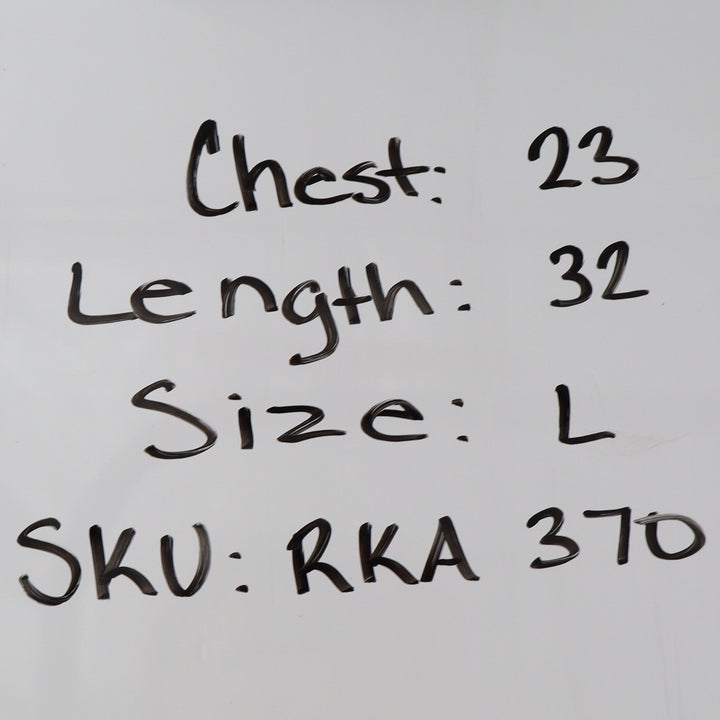 Chest: 23
Length: 32
Size: L
SKU: RKA 370